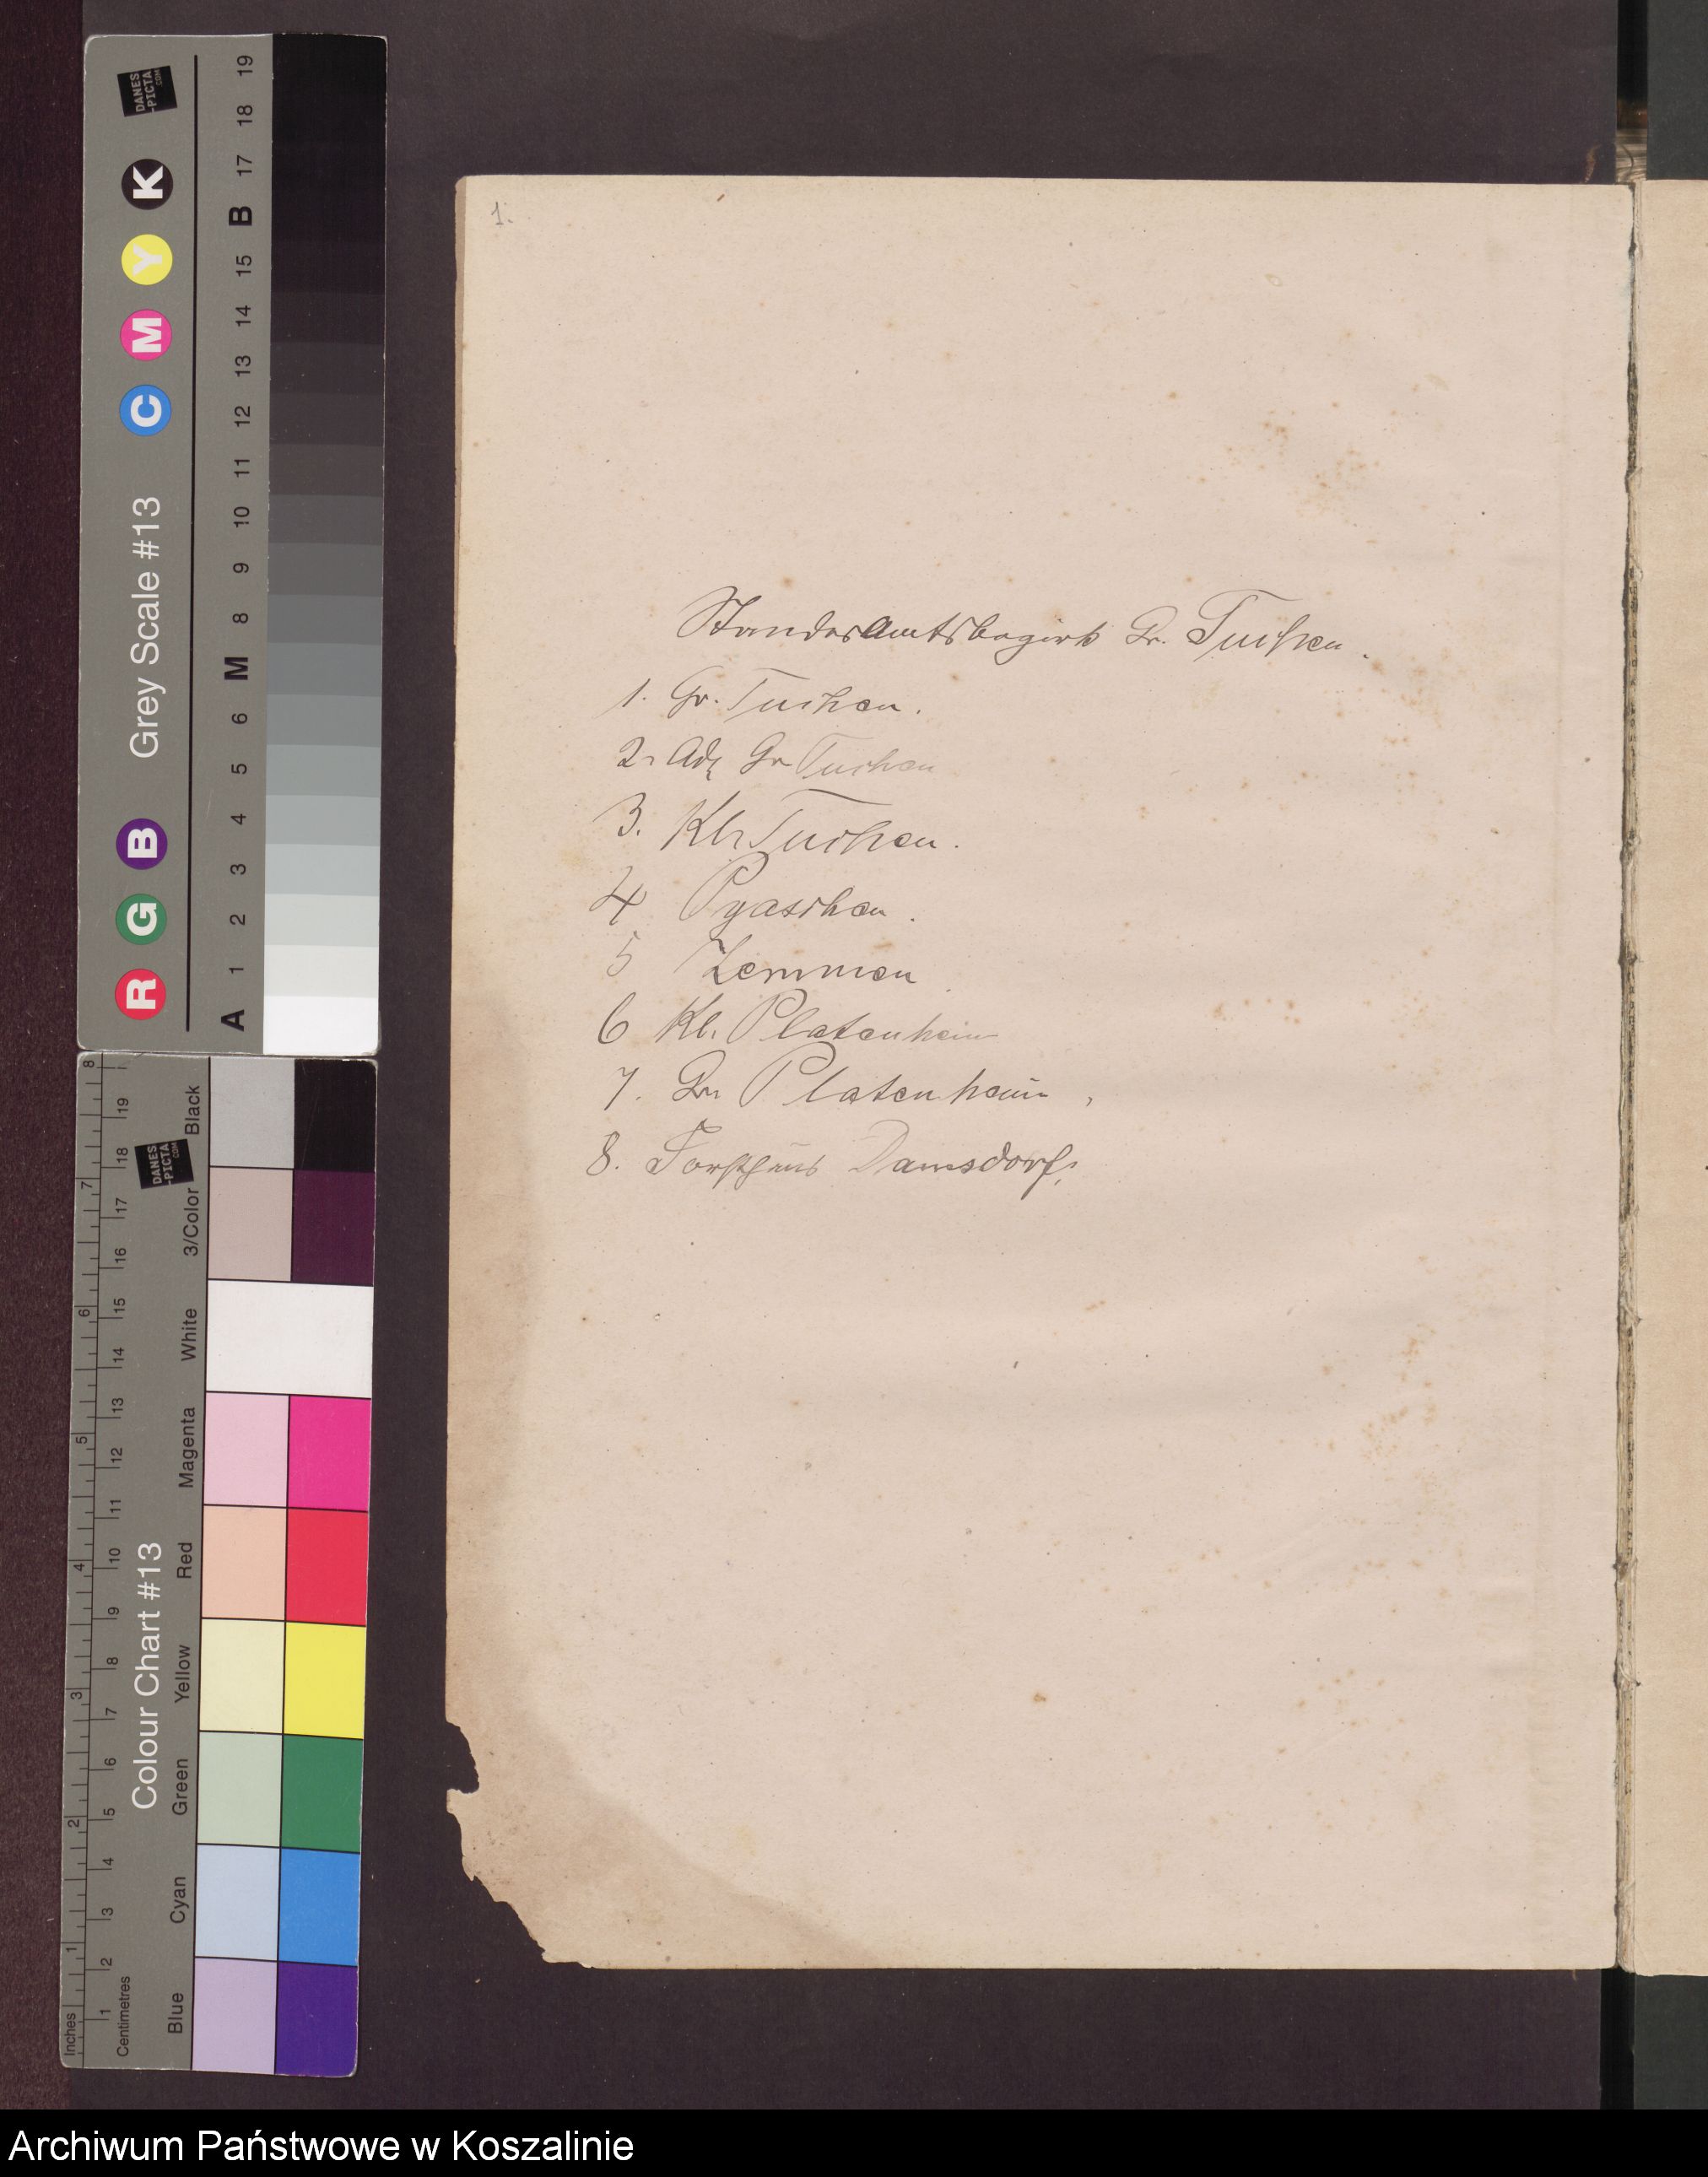 1.
Standesamtsbezirk Gr. Tuchen.
1. Gr. Tuchen.
2. Adl Gr Tuchen
3. Kl. Tuchen.
4 Pyaschen.
5 Zemmen
6 Kl. Platenheim
7. Gr. Platenheim,
8. Forsthaus Damsdorf.
DANES
-PICTA
.COM
R G B Grey Scale #13 C M Y K
A 1 2 3 4 5 6 M 8 9 10 11 12 13 14 15 B 17 18 19
Colour Chart #13
DANES
-PICTA
.COM
Blue Cyan Green Yellow Red Magenta White 3/Color Black
Centimetres 1 2 3 4 5 6 7 8 9 10 11 12 13 14 15 16 17 18 19
Inches 1 2 3 4 5 6 7 8
Archiwum Państwowe w Koszalinie